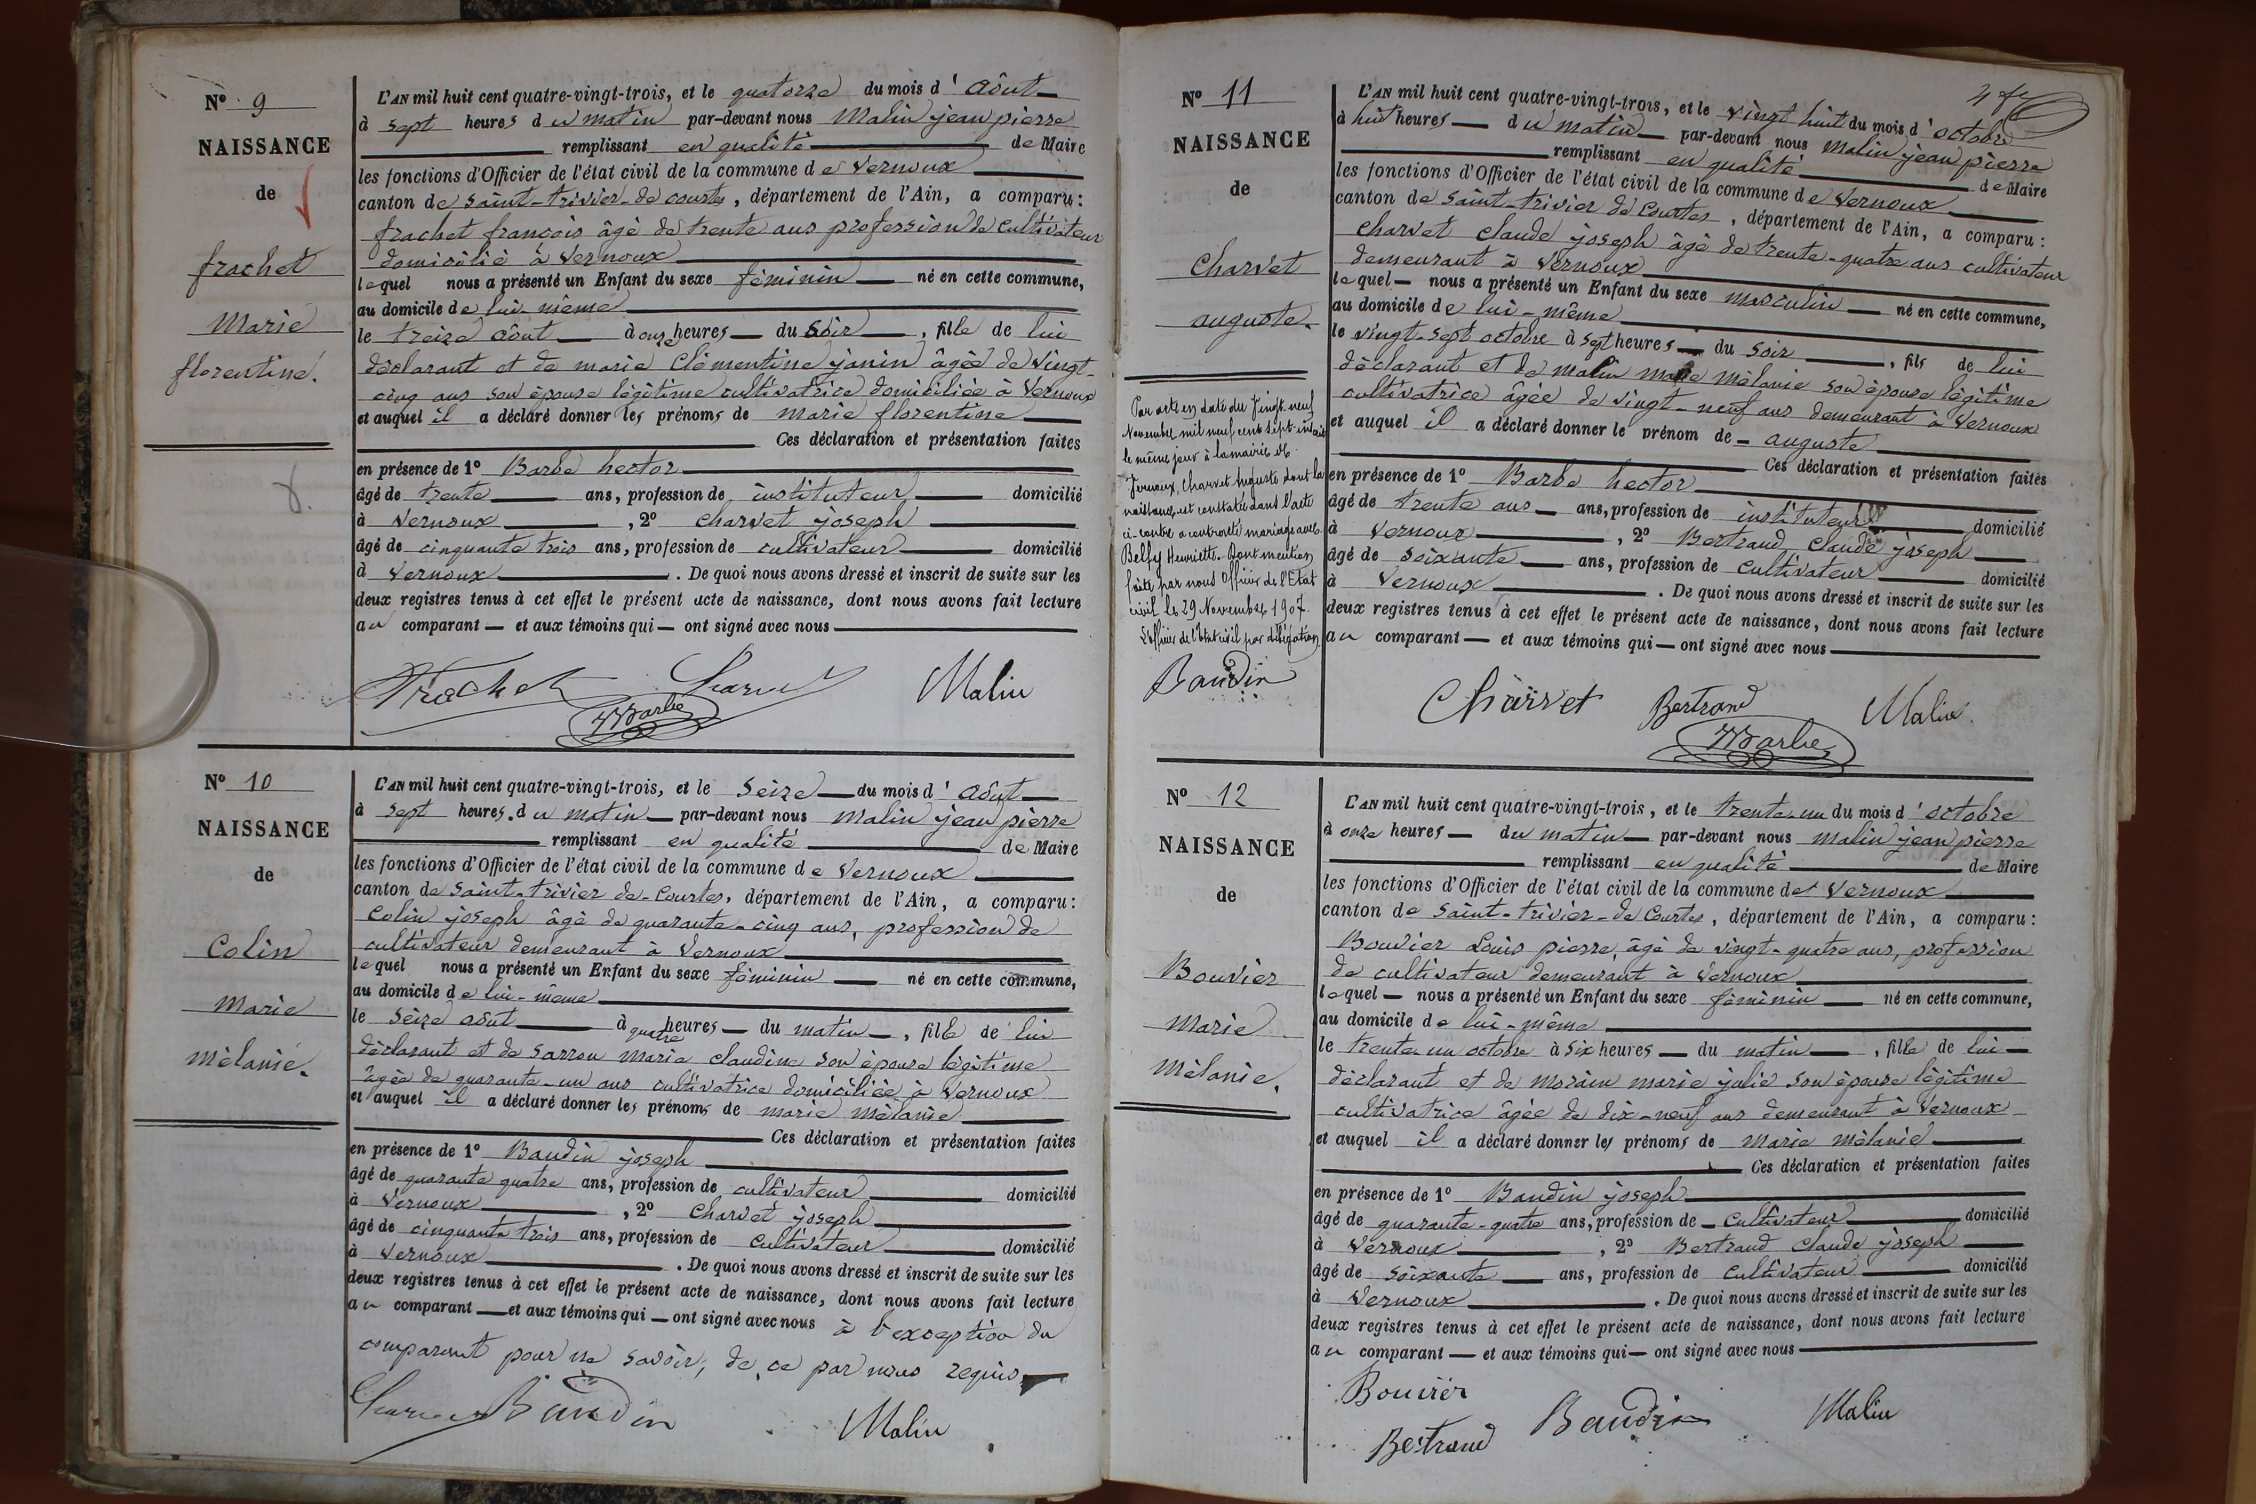 N° 9
NAISSANCE
de
frachet
marie
florentine.
L'AN mil huit cent quatre-vingt-trois, et le quatorze du mois d'aôut
à sept heures du matin par-devant nous Malin jean pierre
remplissant en qualité de Maire
les fonctions d'Officier de l'état civil de la commune de Vernoux
canton de saint-trivier-de courtes, département de l'Ain, a comparu:
frachet françois âgé de trente ans profession de cultivateur
domicilié à Vernoux
lequel nous a présenté un Enfant du sexe féminin né en cette commune,
au domicile de lui-même
le treize aôut à onze heures du soir, fille de lui
déclarant et de marie Clémentine janin âgée de vingt-
cinq ans son épouse légitime cultivatrice domiciliée à Vernoux
et auquel il a déclaré donner les prénoms de marie florentine
Ces déclaration et présentation faites
en présence de 1° Barbe hector
âgé de trente ans, profession de instituteur domicilié
à Vernoux, 2° charvet joseph
âgé de cinquante trois ans, profession de cultivateur domicilié
à Vernoux. De quoi nous avons dressé et inscrit de suite sur les
deux registres tenus à cet effet le présent acte de naissance, dont nous avons fait lecture
au comparant et aux témoins qui ont signé avec nous
Frachet Charvet Malin
HBarbe
N° 10
NAISSANCE
de
Colin
marie
mélanie.
L'AN mil huit cent quatre-vingt-trois, et le seize du mois d'aôut
à sept heures du matin par-devant nous malin jean pierre
remplissant en qualité de Maire
les fonctions d'Officier de l'état civil de la commune de Vernoux
canton de saint-trivier-de-Courtes, département de l'Ain, a comparu:
Colin joseph âgé de quarante-cinq ans, profession de
cultivateur demeurant à Vernoux
lequel nous a présenté un Enfant du sexe féminin né en cette commune,
au domicile de lui-même
le seize aôut à quatre heures du matin, fille de lui
déclarant et de sarron marie claudine son épouse légitime
âgée de quarante-un ans cultivatrice domiciliée à Vernoux
et auquel il a déclaré donner les prénoms de marie mélanie
Ces déclaration et présentation faites
en présence de 1° Baudin joseph
âgé de quarante quatre ans, profession de cultivateur domicilié
à Vernoux, 2° Charvet joseph
âgé de cinquante trois ans, profession de cultivateur domicilié
à Vernoux. De quoi nous avons dressé et inscrit de suite sur les
deux registres tenus à cet effet le présent acte de naissance, dont nous avons fait lecture
au comparant et aux témoins qui ont signé avec nous à l'exception du
comparant pour ne savoir, de ce par nous requis
Charvet Baudin Malin
N° 11
NAISSANCE
de
Charvet
auguste.
Par acte en date du Vingt-neuf
Novembre mil neuf cent sept inscrit
le même jour à la mairie de
Vernoux, Charvet Auguste dont la
naissance est constatée dans l'acte
ci-contre a contracté mariage avec
Belfy Henriette. Dont mention
faite par nous Officier de l'Etat
civil le 29 Novembre 1907.
L'officier de l'Etat civil par délégation
Baudin
L'AN mil huit cent quatre-vingt-trois, et le vingt huit du mois d'octobre
à huit heures du matin par-devant nous malin jean pierre
remplissant en qualité de Maire
les fonctions d'Officier de l'état civil de la commune de Vernoux
canton de saint-trivier de Courtes, département de l'Ain, a comparu:
charvet claude joseph âgé de trente-quatre ans cultivateur
demeurant à Vernoux
lequel nous a présenté un Enfant du sexe masculin né en cette commune,
au domicile de lui-même
le vingt-sept octobre à sept heures du soir, fils de lui
déclarant et de malin marie mélanie son épouse légitime
cultivatrice âgée de vingt-neuf ans demeurant à Vernoux
et auquel il a déclaré donner le prénom de auguste
Ces déclaration et présentation faites
en présence de 1° Barbe hector
âgé de trente ans ans, profession de instituteur domicilié
à Vernoux, 2° Bertrand Claude joseph
âgé de soixante ans, profession de cultivateur domicilié
à Vernoux. De quoi nous avons dressé et inscrit de suite sur les
deux registres tenus à cet effet le présent acte de naissance, dont nous avons fait lecture
au comparant et aux témoins qui ont signé avec nous
Charvet Bertrand Malin
HBarbe
N° 12
NAISSANCE
de
Bouvier
marie
mélanie.
L'AN mil huit cent quatre-vingt-trois, et le trente-un du mois d'octobre
à onze heures du matin par-devant nous malin jean pierre
remplissant en qualité de Maire
les fonctions d'Officier de l'état civil de la commune de Vernoux
canton de saint-trivier-de Courtes, département de l'Ain, a comparu:
Bouvier Louis pierre, âgé de vingt-quatre ans, profession
de cultivateur demeurant à Vernoux
lequel nous a présenté un Enfant du sexe féminin né en cette commune,
au domicile de lui-même
le trente-un octobre à six heures du matin, fille de lui
déclarant et de morain marie julie son épouse légitime
cultivatrice âgée de dix-neuf ans demeurant à Vernoux
et auquel il a déclaré donner les prénoms de marie mélanie
Ces déclaration et présentation faites
en présence de 1° Baudin joseph
âgé de quarante-quatre ans, profession de Cultivateur domicilié
à Vernoux, 2° Bertrand Claude joseph
âgé de soixante ans, profession de cultivateur domicilié
à Vernoux. De quoi nous avons dressé et inscrit de suite sur les
deux registres tenus à cet effet le présent acte de naissance, dont nous avons fait lecture
au comparant et aux témoins qui ont signé avec nous
Bouvier
Bertrand Baudin Malin